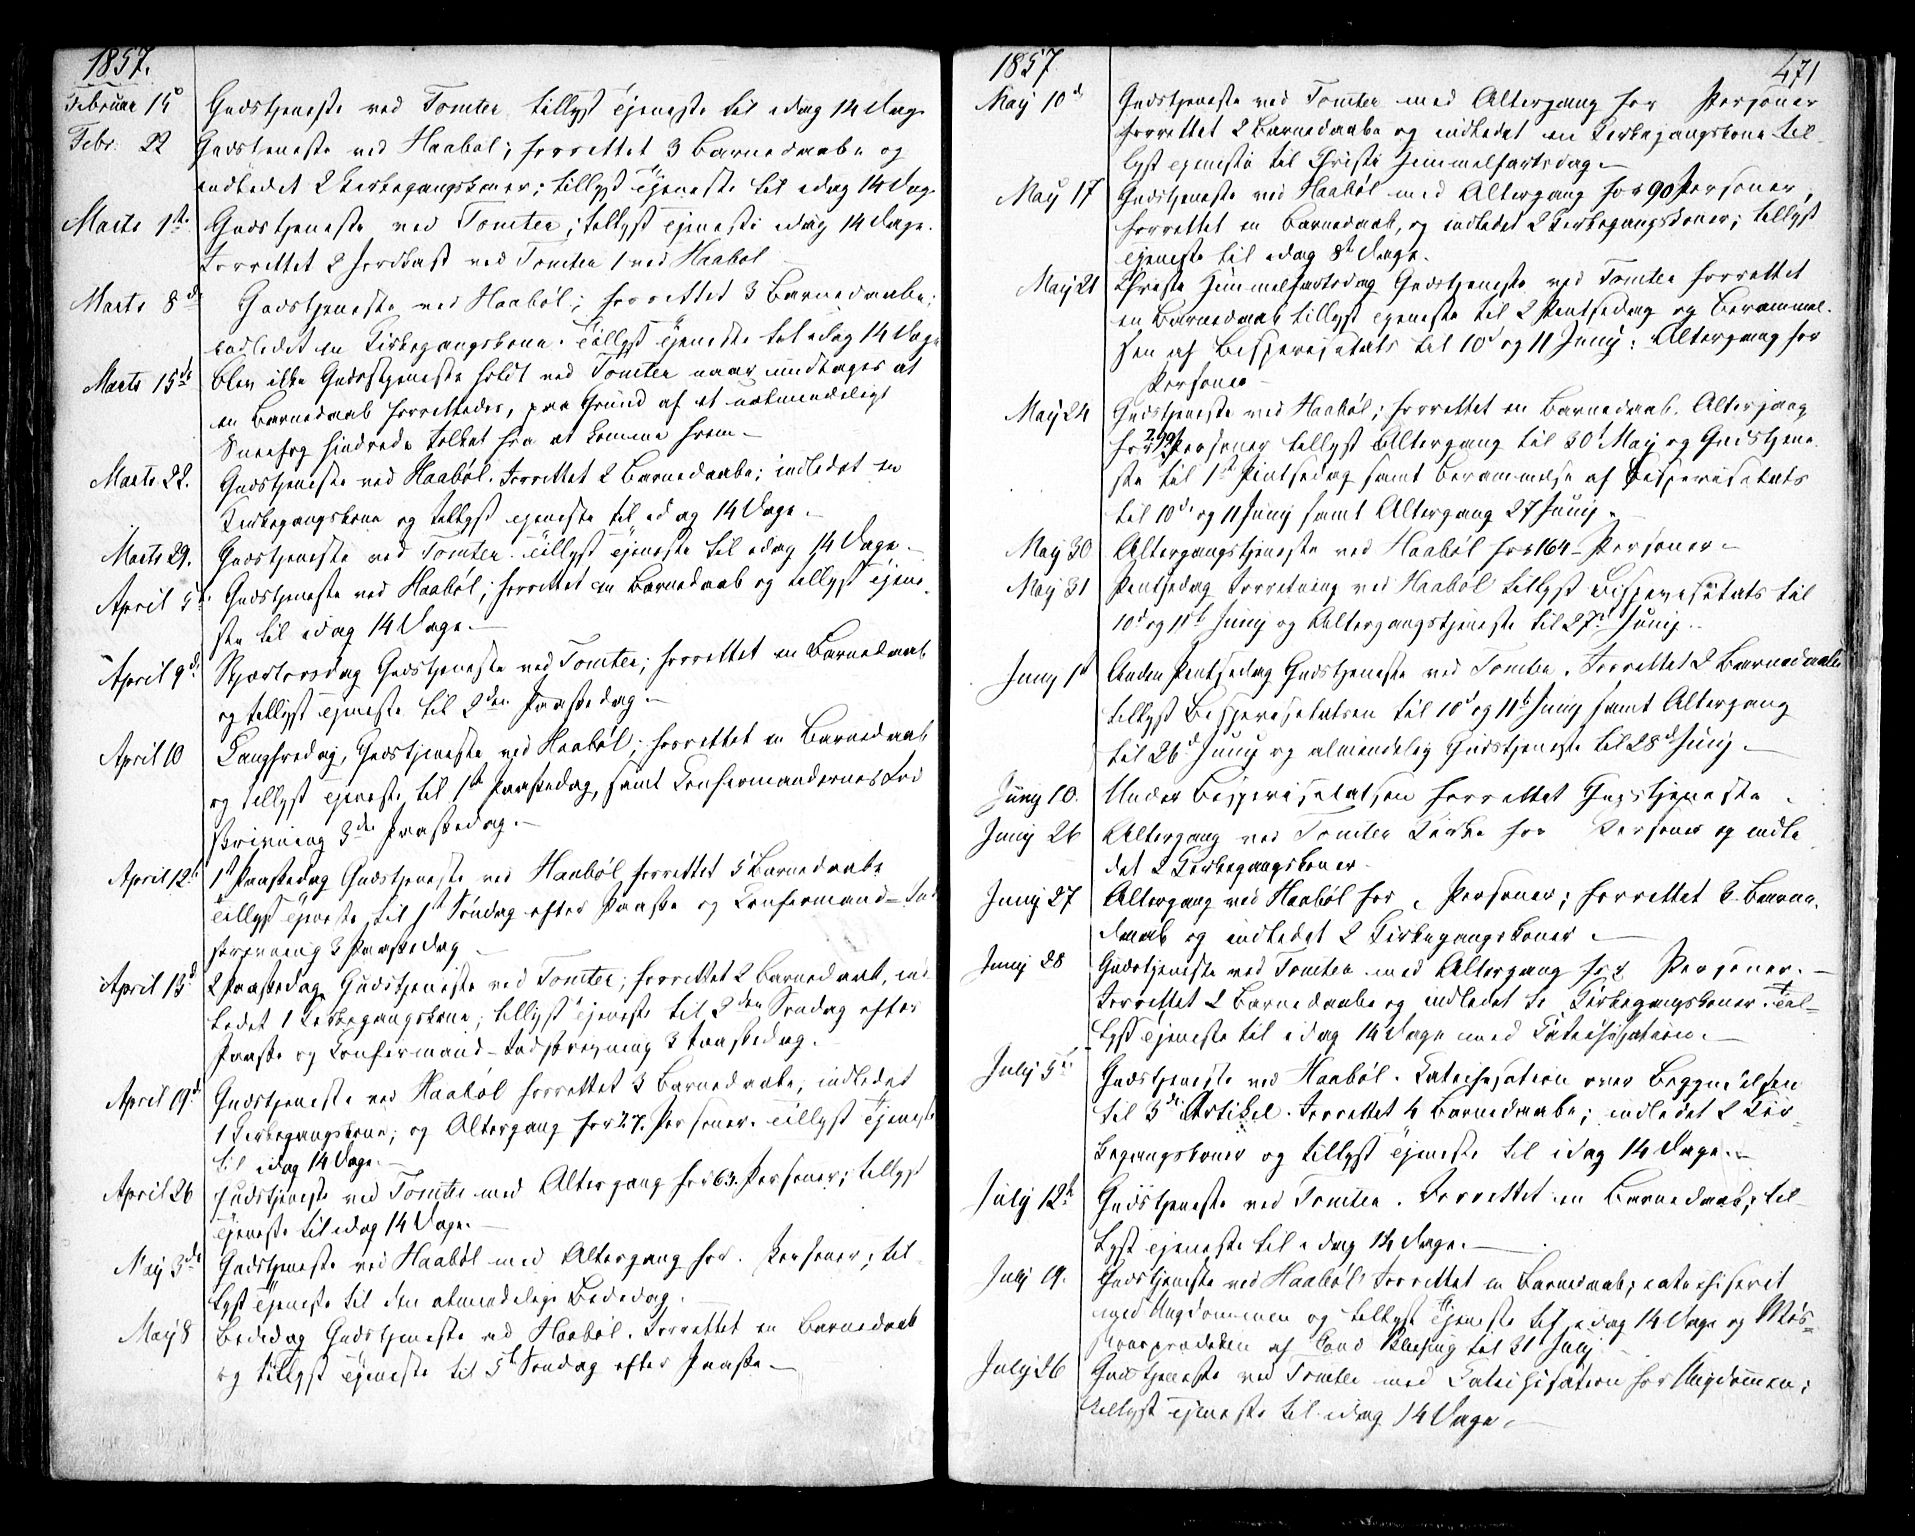 1857.
Februar 15d Gudstjeneste ved Tomter tillyst Tjeneste til idag 14 Dage
Febr. 22 Gudstjeneste ved Haabøl; forrettet 3 Barnedaabe og
indledet 2 Kirkegangskoner; tillyst Tjeneste til idag 14 Dage
Marts 1ste Gudstjeneste ved Tomter; tillyst Tjeneste idag 14 Dage.
Forrettet 2 Jordkast ved Tomter 1 ved Haabøl
Marts 8d Gudstjeneste ved Haabøl; forrettet 3 Barnedaabe;
indledet en Kirkegangskone. Tillyst Tjeneste til idag 14 Dage
Marts 15de blev ikke Gudstjeneste holdt ved Tomter naar undtages at
en Barnedaab forrettedes, paa Grund af et ualmindeligt
Sneefog hindrede Folket fra at komme frem.
Marts 22. Gudstjeneste ved Haabøl. Forrettet 2 Barnedaabe; indledet en
Kirkegangskone og tillyst Tjeneste til idag 14 Dage.
Marts 29. Gudstjeneste ved Tomter. Tillyst Tjeneste til idag 14 Dage.
April 5t Gudstjeneste ved Haabøl; forrettet en Barnedaab og tillyst Tjene-
ste til idag 14 Dage.
April 9d Skjærtorsdag Gudstjeneste ved Tomter; forrettet en Barnedaab
og tillyst Tjeneste til 2den Paaskedag.
April 10 Langfredag, Gudstjeneste ved Haabøl; forrettet en Barnedaab
og tillyst Tjeneste til 1st Paaskedag, samt Confirmandernes Ind
skrivning 3die Paaskedag.
April 12t 1st Paaskedag Gudstjeneste ved Haabøl forrettet 5 Barnedaabe
Tillyst Tjeneste til 1st Søndag efter Paaske og Confirmand-Ind
skrivning 3 Paaskedag
April 13d 2 Paaskedag Gudstjeneste ved Tomter; forrettet 2 Barnedaab, ind
ledet 1 Kirkegangskone; tillyst Tjeneste til 2den Søndag efter
Paaske og Confirmand-Indskrivning 3 Paaskedag.
April 19d Gudstjeneste ved Haabøl forrettet 3 Barnedaabe, indledet
1 Kirkegangskone; og Altergang for 27. Personer. Tillyst Tjeneste
til idag 14 Dage.
April 26 Gudstjeneste ved Tomter med Altergang for 63. Personer; tillyst
Tjeneste til idag 14 Dage.
May 3de Gudstjeneste ved Haabøl med Altergang for. Personer; til-
lyst Tjeneste til den almindelige Bededag.
May 8 Bededag Gudstjeneste ved Haabøl. Forrettet en Barnedaab
og tillyst Tjeneste til 5t Søndag efter Paaske.
1857
471
May 10d Gudstjeneste ved Tomter med Altergang for Personer
forrettet 2 Barnedaabe og indledet en Kirkegangskone til-
lyst Tjeneste til Christi Himmelfartsdag.
May 17 Gudstjeneste ved Haabøl med Altergang for 90 Personer,
forrettet en Barnedaab, og indledet 2 Kirkegangskoner; tillyst
Tjeneste til idag 8te Dage.
May 21 Christi Himmelfartsdag Gudstjeneste ved Tomter forrettet
en Barnedaab tillyst Tjeneste til 2 Pintsedag og Berammel-
sen af Bispevisitats til 10d og 11 Juny: Altergang for
Personer
May 24 Gudstjeneste ved Haabøl; forrettet en Barnedaab. Altergang
for 299 Personer tillyst Altergang til 30t May og Gudstjene-
ste til 1st Pintsedag samt Berammelse af Bispevisitats
til 10d og 11 Juny samt Altergang 27 Juny.
May 30 Altergangstjeneste ved Haabøl for 164 Personer
May 31 Pintsedag Forretning ved Haabøl tillyst Bispevisitats til
10d og 11t Juny og Altergangstjeneste til 27d Juny.
Juny 1st Anden Pintsedag Gudstjeneste ved Tomter. Forrettet 2 Barnedaabe
tillyst Bispevisitatsen til 10d og 11t Juny samt Altergang
til 26d Juny og almindelig Gudstjeneste til 28d Juny.
Juny 10. Under Bispevisitatsen forrettet Gudstjeneste.
Juny 26 Altergang ved Tomter Kirke for Personer og indle
det 2 Kirkegangskoner.
Juny 27 Altergang ved Haabøl for Personer; forrettet 2 Barne-
daab og indledet 2 Kirkegangskoner.
Juny 28 Gudstjeneste ved Tomter med Altergang for Personer.
Forrettet 2 Barnedaabe og indledet to Kirkegangskoner. Til-
lyst Tjeneste til idag 14 Dage med Catechisation.
July 5t Gudstjeneste ved Haabøl. Catechisation over Begyndelsen
til 3die Artikel. Forrettet 4 Barnedaabe; indledet 2 Kir-
kegangskoner og tillyst Tjeneste til idag 14 Dage.
July 12te Gudstjeneste ved Tomter. Forrettet en Barnedaab; til-
lyst Tjeneste til idag 14 Dage.
July 19. Gudstjeneste ved Haabøl Forrettet en Barnedaab; catechiseret
med Ungdommen og tillyst Tjeneste til idag 14 Dage og Mis-
sionsprædiken af Cand til 31t July
July 26 Gudstjeneste ved Tomter med Catechisation for Ungdommen;
tillyst Tjeneste til idag 14 Dage.